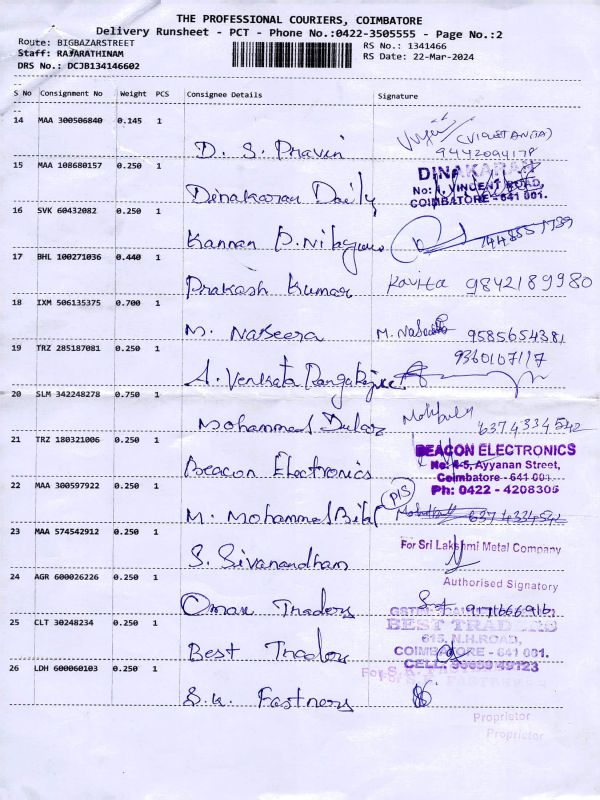 THE PROFESSIONAL COURIERS, COIMBATORE
Delivery Runsheet - PCT - Phone No.:0422-3505555 - Page No.:2
Route: BIGBAZARSTREET
RS No.: 1341466
Staff: RAJARATHINAM
RS Date: 22-Mar-2024
DRS No.: DCJB134146602
S No Consignment No Weight PCS Consignee Details Signature
14 MAA 300506840 0.145 1
D. S. Pravin
9442094178
15 MAA 108680157 0.250 1
Dinakaran Daily
DINAKARAN
No: VINCENT ROAD,
COIMBATORE - 641 001.
16 SVK 60432082 0.250 1
Kannan
17 BHL 100271036 0.440 1
Prakash Kumar
Kavita 9842189980
18 IXM 506135375 0.700 1
M. Nabeera
9585654381
19 TRZ 285187081 0.250 1
A. Venkata
20 SLM 342248278 0.750 1
Mohammed
6374334542
21 TRZ 180321006 0.250 1
Beacon Electronics
BEACON ELECTRONICS
No: 4-5, Ayyanan Street,
Coimbatore - 641 001
Ph: 0422 - 4208305
22 MAA 300597922 0.250 1
M. Mohammed Bilal
23 MAA 574542912 0.250 1
S. Sivanandham
For Sri Lakshmi Metal Company
Authorised Signatory
24 AGR 600026226 0.250 1
Oman Traders
25 CLT 30248234 0.250 1
Best Traders
BEST TRADERS
615, N.H.ROAD,
COIMBATORE - 641 001.
26 LDH 600060103 0.250 1
S.K. Fastners
Proprietor
Proprietor